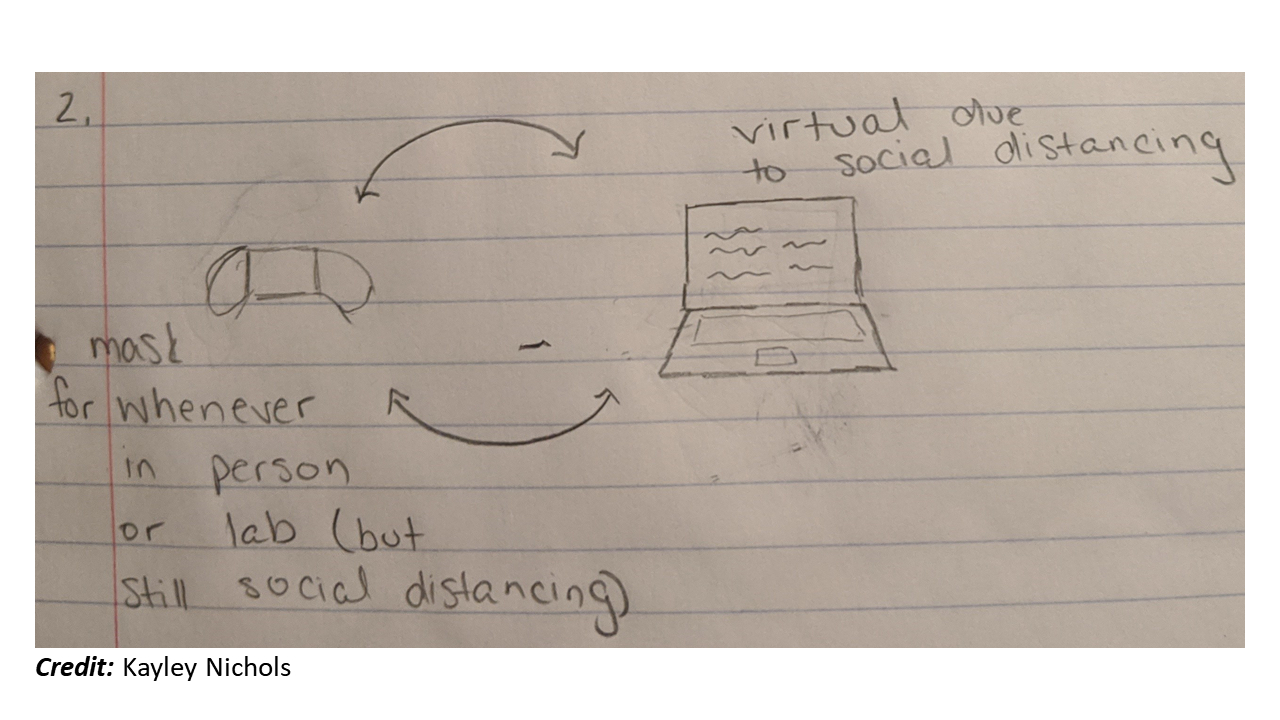 2.
virtual due
to social distancing
mask
for whenever
in person
or lab (but
still social distancing)
Credit: Kayley Nichols